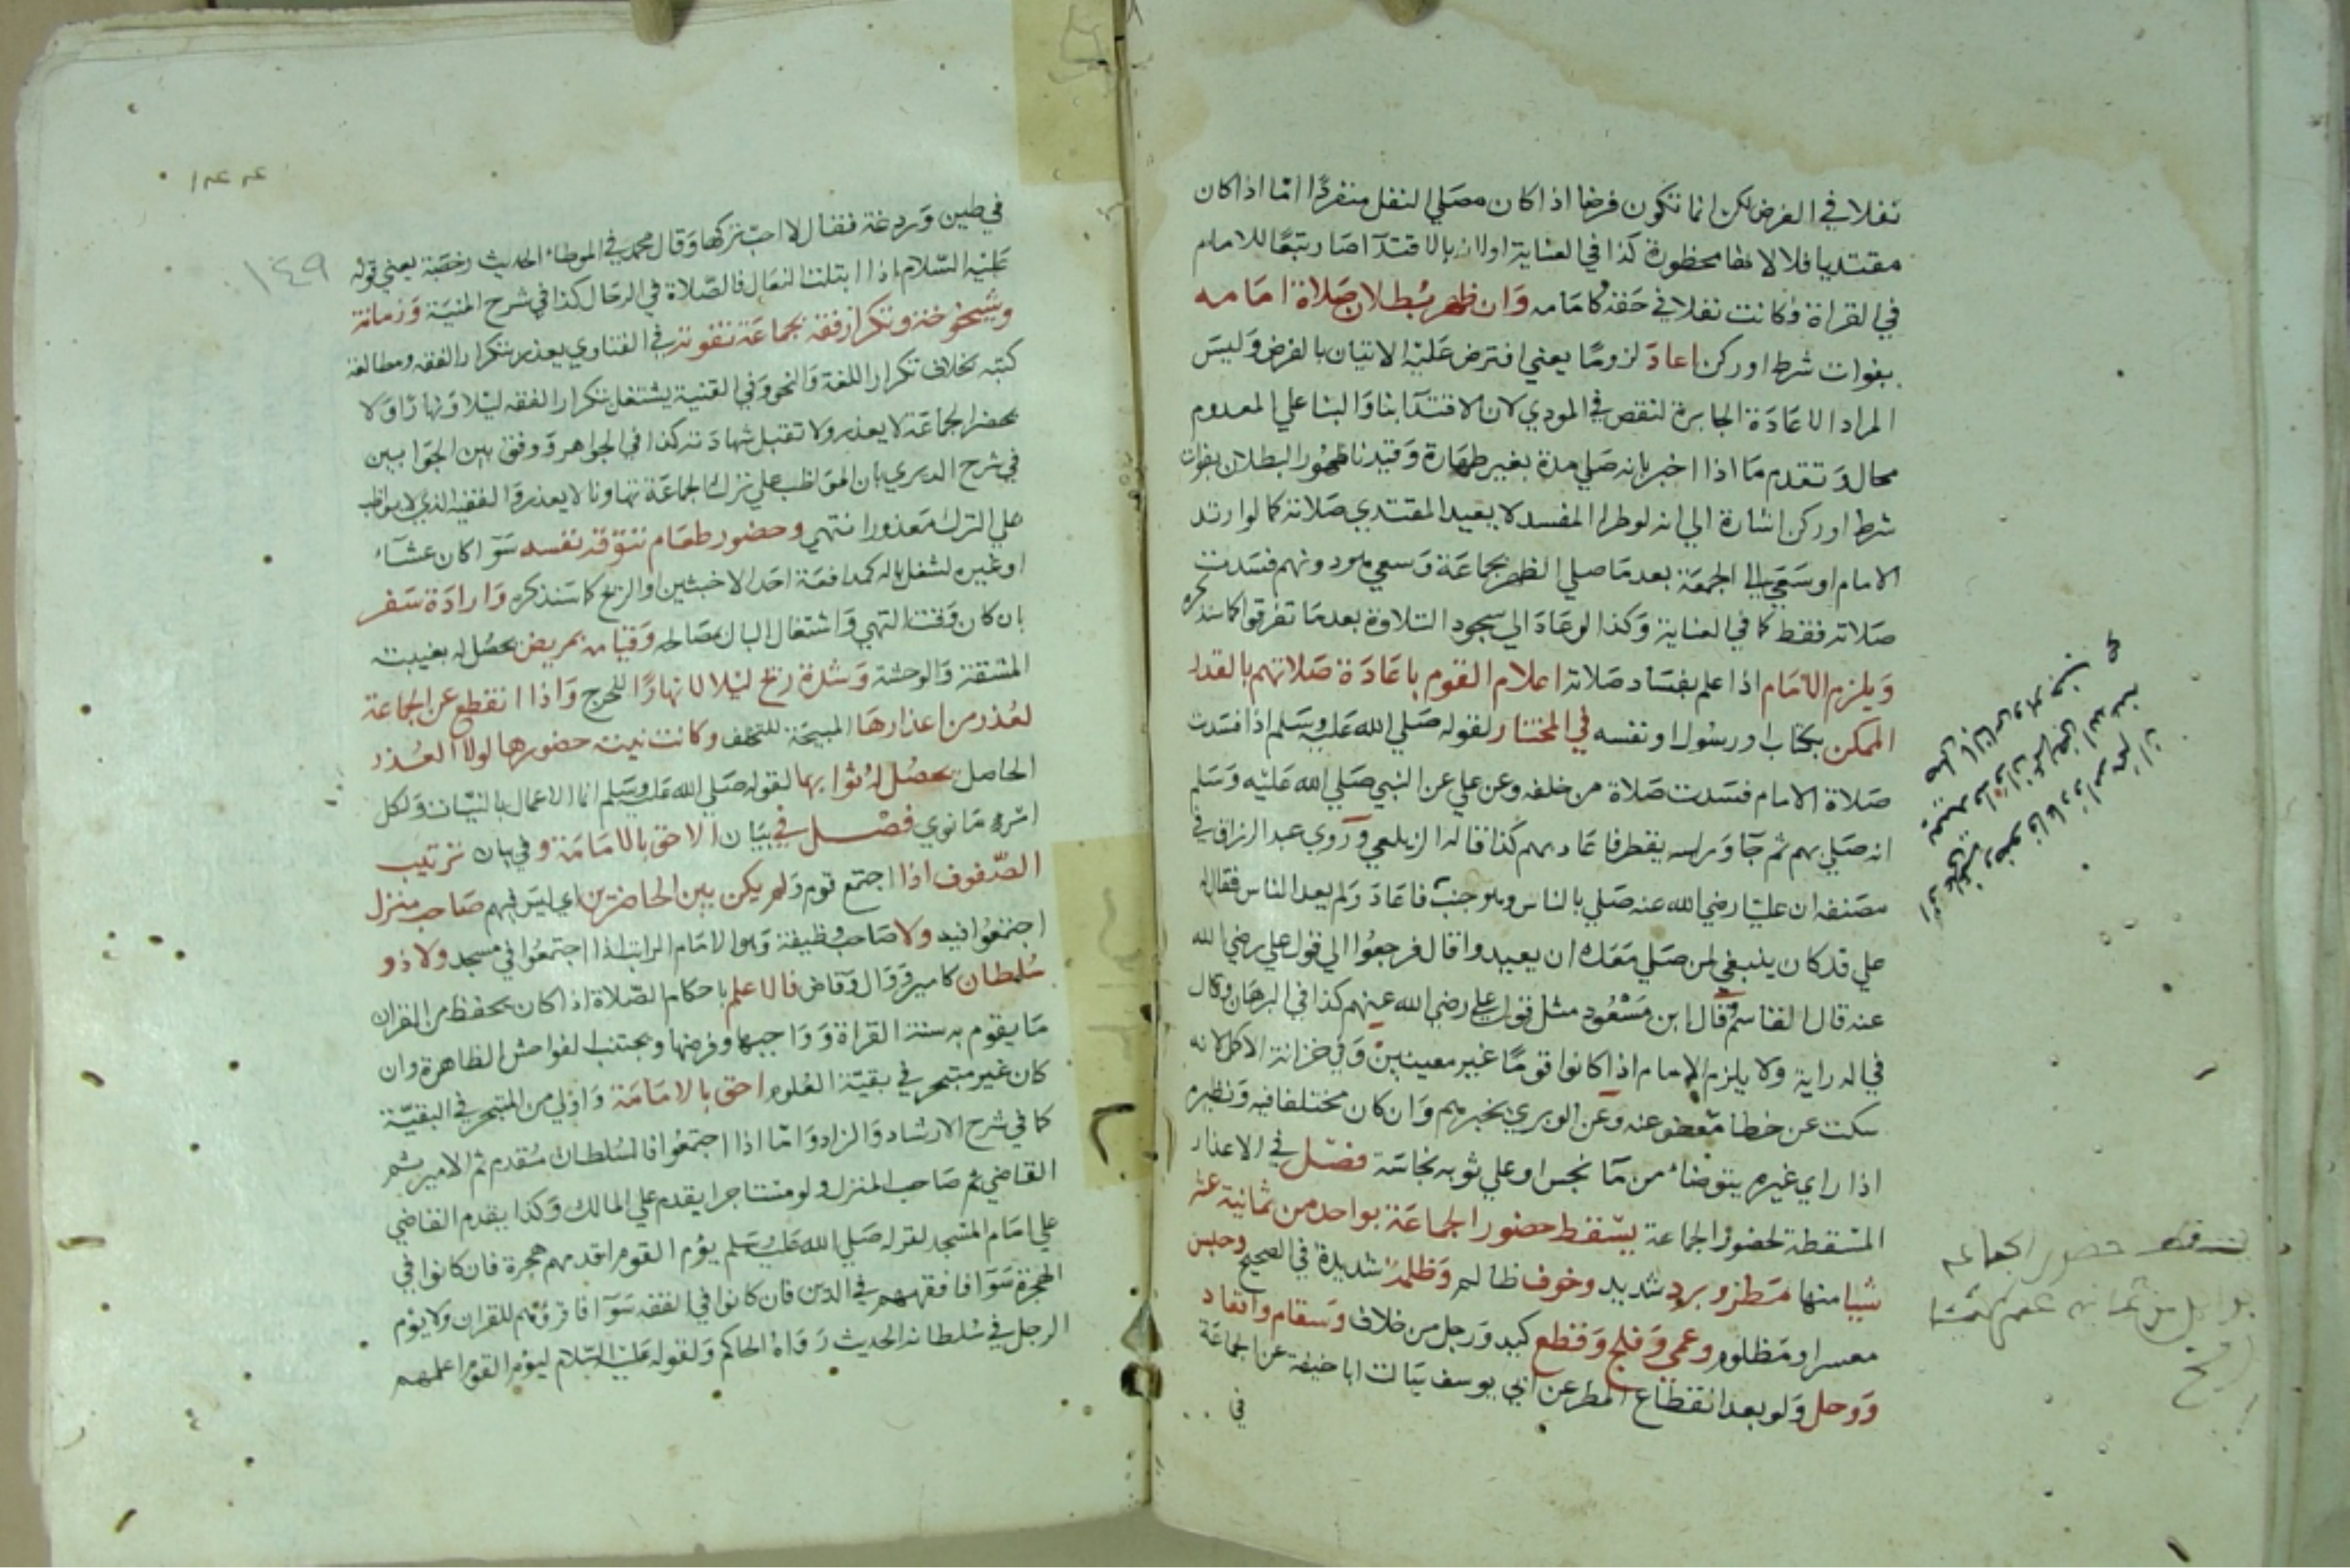 نفلا في الفرض لكن انما تكون فرضا اذا كان مصلي النفل منفردا اما اذا كان
مقتديا فلا لانها محظورة كذا في العناية اولانه بالاقتدآ صار تبعا للامام
في القراة فكانت نفلا في حقه كامامه وان ظهر بطلان صلاة امامه
بفوات شرط او ركن اعاد لزوما يعني افترض عليه الاتيان بالفرض وليس
المراد الاعادة الجابرة لنقص في المودي لان الاقتدآ بنا والبنا علي المعدوم
محال وتقدم ما اذا اخبر بانه صلي مدة بغير طهارة وقيدنا ظهور البطلان بفوات
شرط او ركن اشارة الي انه لو طرا المفسد لا يعيد المقتدي صلاته كما لو ارتد
الامام او سعي الي الجمعة بعد ما صلي الظهر بجماعة وسعي هو دونهم فسدت
صلاته فقط كما في العناية وكذا لو عاد الي سجود التلاوة بعد ما تفرقوا كما سنذكره
ويلزم الامام اذا علم بفساد صلاته اعلام القوم باعادة صلاتهم بالقدر
الممكن بكتاب او رسول او نفسه في المختار لقوله صلي الله عليه وسلم اذا فسدت
صلاة الامام فسدت صلاة من خلفه وعن علي عن النبي صلي الله عليه وسلم
انه صلي بهم ثم جآ وراسه يقطر فاعاد بهم كذا قاله الزيلعي وروي عبد الرزاق في
مصنفه ان عليا رضي الله عنه صلي بالناس وهو جنب فاعاد ولم يعد الناس فقال له
علي قد كان ينبغي لمن صلي معك ان يعيدوا قال فرجعوا الي قول علي رضي الله
عنه قال القاسم قال ابن مسعود مثل قول علي رضي الله عنهم كذا في البرهان وقال
في الدراية ولا يلزم الامام اذا كانوا قوما غير معينين وفي خزانة الاكمل لانه
سكت عن خطا معفو عنه وعن الوبري يخبرهم وان كان مختلفا فيه ونظيره
اذا راي غيره يتوضا من مآ نجس او علي ثوبه نجاسة فصل في الاعذار
المسقطة لحضور الجماعة يسقط حضور الجماعة بواحد من ثمانية عشر
شيا منها مطر وبرد شديد وخوف ظالم وظلمة شديدة في الصحيح وحبس
معسر او مظلوم وعمي وفلج وقطع كيد ورجل من خلاف وسقام واقعاد
ووحل ولو بعد انقطاع المطر عن ابي يوسف سالت ابا حنيفة عن الجماعة
في
يسقط حضور الجماعه
بواحد من ثمانيه عشر شيئا
١٤٩
في طين وردغة فقال لا احب تركها وقال محمد في الموطا الحديث رخصة يعني قوله
عليه السلام اذا ابتلت النعال فالصلاة في الرحال كذا في شرح المنية وزمانة
وشيخوخة وتكرار فقه بجماعة تفوته في الفتاوي يعذر بتكرار الفقه ومطالعة
كتبه بخلاف تكرار اللغة والنحو وفي القنية يشتغل بتكرار الفقه ليلا ونهارا ولا
يحضر الجماعة لا يعذر ولا تقبل شهادته كذا في الجواهر ووفق بين الجوابين
في شرح الديري بان المواظب علي ترك الجماعة تهاونا لا يعذر والفقيه الذي لا يواظب
علي الترك معذور انتهي وحضور طعام تتوقه نفسه سوآ كان عشآء
او غيره لشغل باله كمدافعة احد الاخبثين او الريح كما سنذكره وارادة سفر
بان كان وقت التهي واشتغال البال بمصالحه وقيامه بمريض يحصل له بغيبته
المشقة والوحشة وشدة ريح ليلا لا نهارا للحرج واذا انقطع عن الجماعة
لعذر من اعذارها المبيحة للتخلف وكانت نيته حضورها لولا العذر
الحاصل يحصل له ثوابها لقوله صلي الله عليه وسلم انما الاعمال بالنيات ولكل
امرء ما نوي فصل في بيان الاحق بالامامة وفي بيان ترتيب
الصفوف اذا اجتمع قوم ولم يكن بين الحاضرين اي ليس فيهم صاحب منزل
اجتمعوا فيه ولا صاحب وظيفة وهو الامام الراتب اذا اجتمعوا في مسجد ولا ذو
سلطان كامير ووال وقاض فالاعلم باحكام الصلاة اذا كان يحفظ من القران
ما يقوم به سنة القراة وواجبها وفرضها ويجتنب الفواحش الظاهرة وان
كان غير متبحر في بقية العلوم احق بالامامة واولي من المتبحر في البقية
كما في شرح الارشاد والزاد واما اذا اجتمعوا فالسلطان مقدم ثم الامير ثم
القاضي ثم صاحب المنزل ولو مستاجرا يقدم علي المالك وكذا يقدم القاضي
علي امام المسجد لقوله صلي الله عليه وسلم يؤم القوم اقدمهم هجرة فان كانوا في
الهجرة سوآ فافقههم في الدين فان كانوا في الفقه سوآ فاقرؤهم للقران ولا يؤم
الرجل في سلطانه الحديث رواه الحاكم ولقوله عليه السلام ليؤم القوم اعلمهم